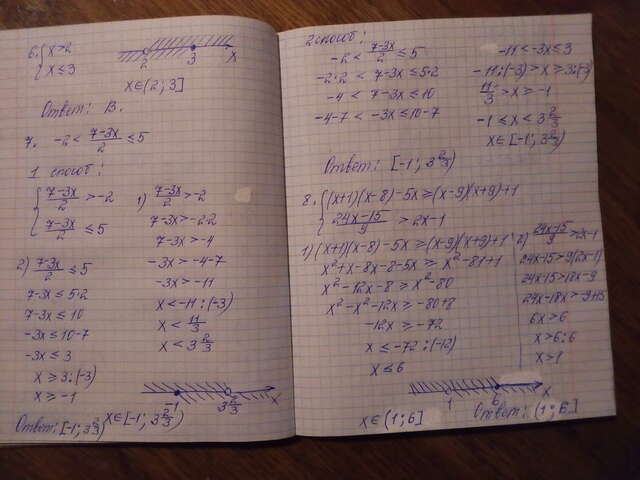 6. { x>2
x≤3
2 3 x
x∈(2; 3]
Ответ: В.
7. -2 < (7-3x)/2 ≤ 5
1 способ:
{ (7-3x)/2 > -2
(7-3x)/2 ≤ 5
1) (7-3x)/2 > -2
7-3x > -2·2
7-3x > -4
-3x > -4-7
-3x > -11
x < -11:(-3)
x < 11/3
x < 3 2/3
2) (7-3x)/2 ≤ 5
7-3x ≤ 5·2
7-3x ≤ 10
-3x ≤ 10-7
-3x ≤ 3
x ≥ 3:(-3)
x ≥ -1
-1 3 2/3 x
x∈[-1; 3 2/3)
Ответ: [-1; 3 2/3)
2 способ:
-2 < (7-3x)/2 ≤ 5
-2·2 < 7-3x ≤ 5·2
-4 < 7-3x ≤ 10
-4-7 < -3x ≤ 10-7
-11 < -3x ≤ 3
-11:(-3) > x ≥ 3:(-3)
11/3 > x ≥ -1
-1 ≤ x < 3 2/3
x∈[-1; 3 2/3)
Ответ: [-1; 3 2/3)
8. { (x+1)(x-8)-5x ≥ (x-9)(x+9)+1
(24x-15)/9 > 2x-1
1) (x+1)(x-8)-5x ≥ (x-9)(x+9)+1
x²+x-8x-8-5x ≥ x²-81+1
x²-12x-8 ≥ x²-80
x²-x²-12x ≥ -80+8
-12x ≥ -72
x ≤ -72:(-12)
x ≤ 6
2) (24x-15)/9 > 2x-1
24x-15 > 9(2x-1)
24x-15 > 18x-9
24x-18x > -9+15
6x > 6
x > 6:6
x > 1
1 6 x
x∈(1; 6]
Ответ: (1; 6]